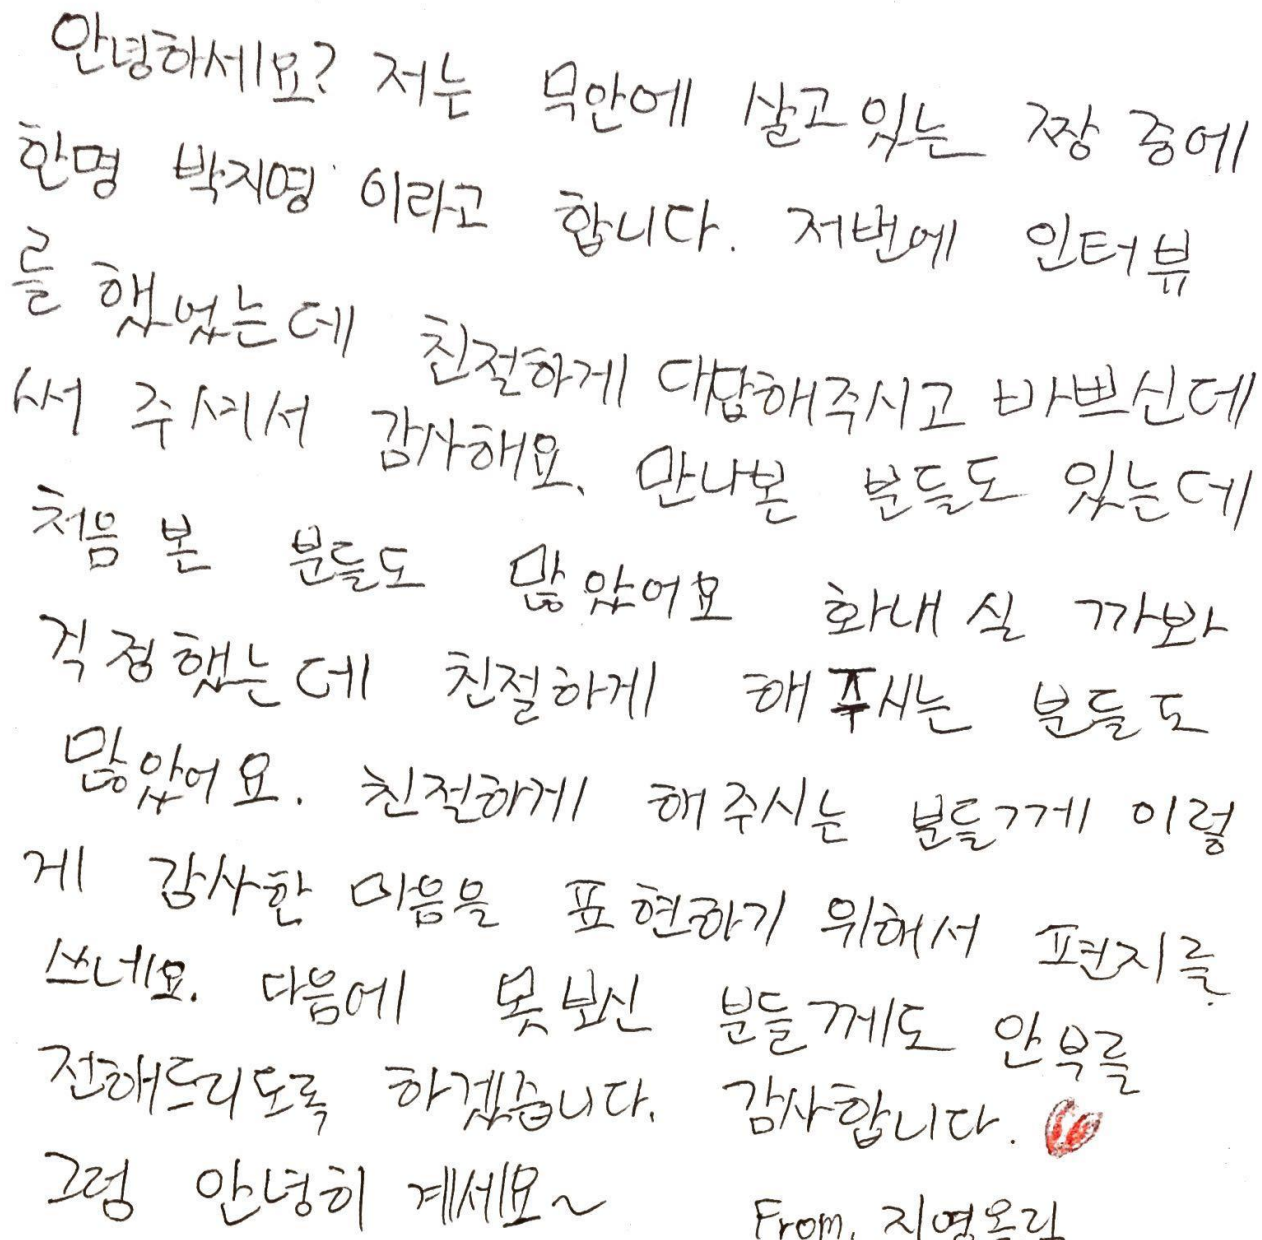 안녕하세요? 저는 무안에 살고있는 짱 중에
한명 박지영 이라고 합니다. 저번에 인터뷰
를 했었는데 친절하게 대답해주시고 바쁘신데
써 주셔서 감사해요. 만나본 분들도 있는데
처음 본 분들도 많았어요 화내실 까봐
걱정했는데 친절하게 해주시는 분들도
많았어요. 친절하게 해주시는 분들께 이렇
게 감사한 마음을 표현하기 위해서 편지를
쓰네요. 다음에 못보신 분들께도 안부를
전해드리도록 하겠습니다. 감사합니다.
그럼 안녕히 계세요~
From. 지영올림